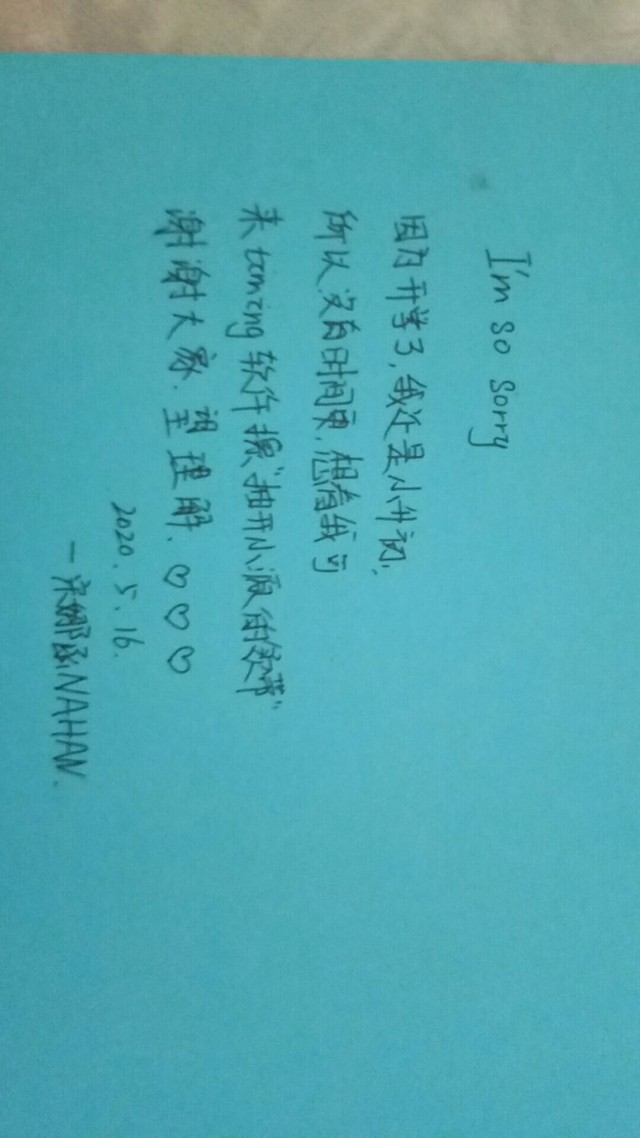 I'm so sorry
因为开学了,我还是小升初,
所以没有时间更,想看我可
来toming软件搜"抽开小源的纹带"
谢谢大家.望理解.♡♡♡
2020.5.16.
—娜函NAHAN.